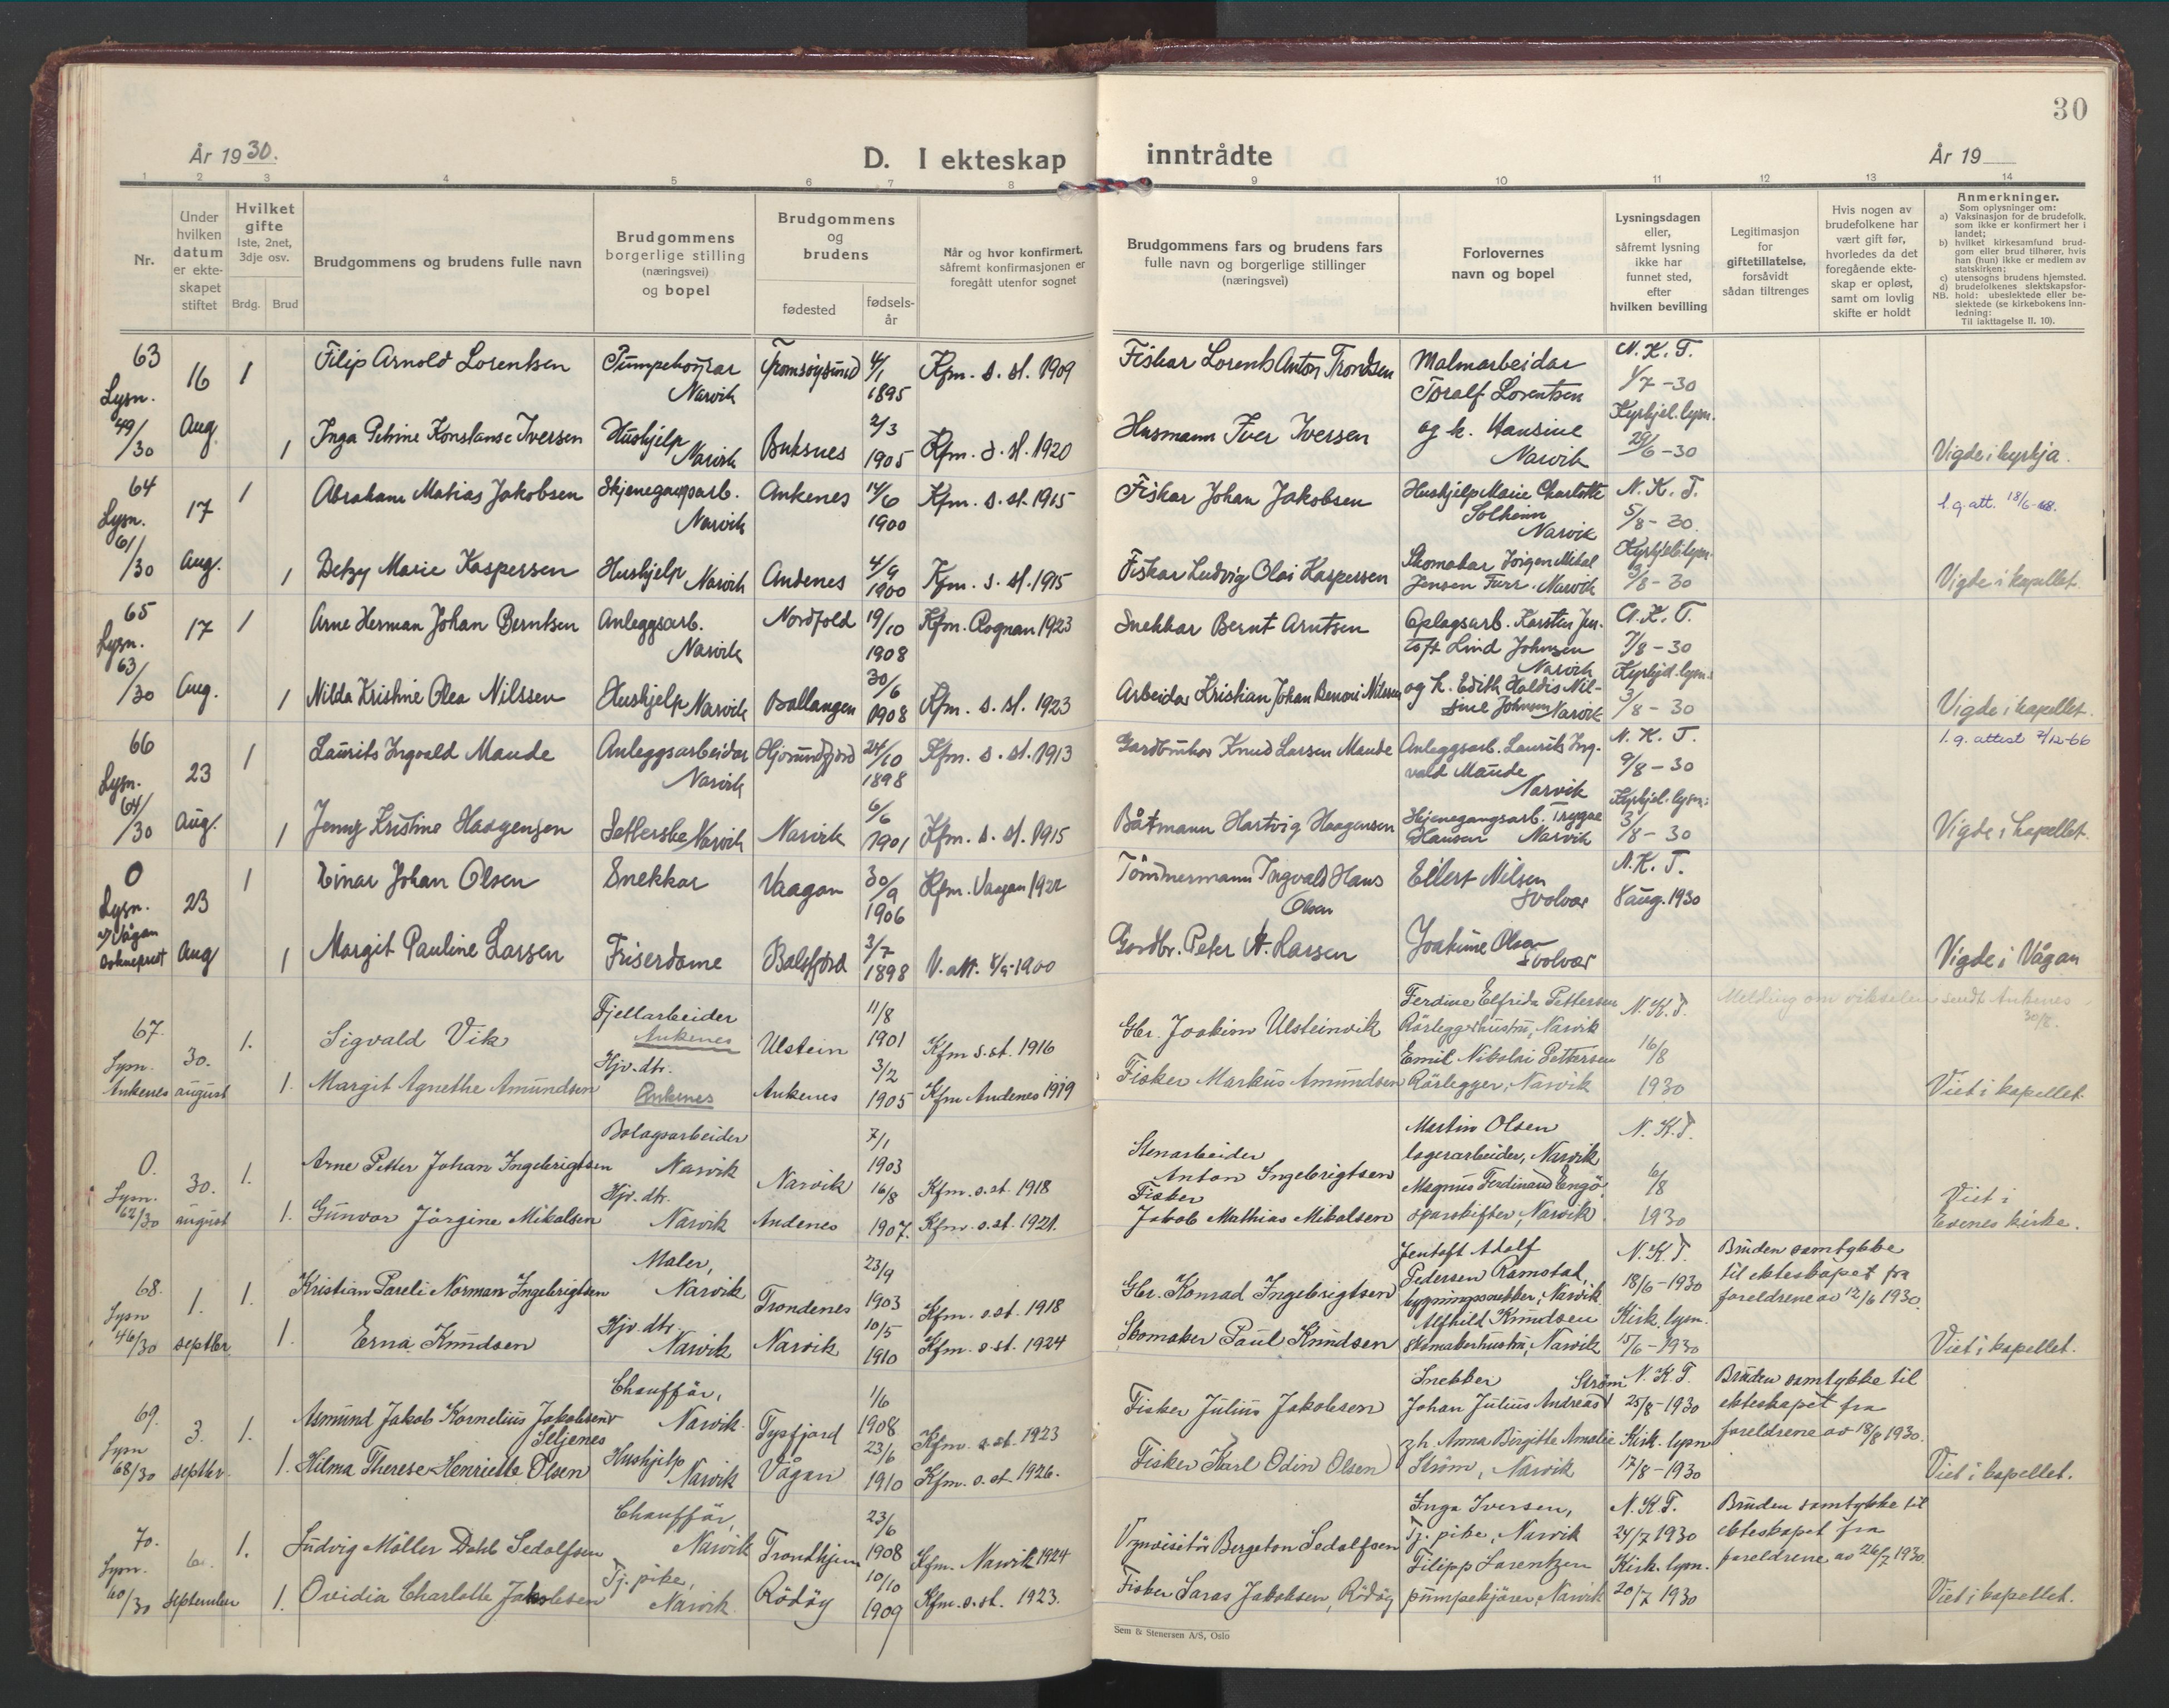 30
År 1930.
D. I ekteskap inntrådte
År 19
1 2 3 4 5 6 7 8 9 10 11 12 13 14
Nr.
Under hvilken datum er ekte-skapet stiftet
Hvilket gifte 1ste, 2net, 3dje osv.
Brdg. Brud
Brudgommens og brudens fulle navn
Brudgommens borgerlige stilling (næringsvei) og bopel
Brudgommens og brudens
fødested
fødsels-år
Når og hvor konfirmert, såfremt konfirmasjonen er foregått utenfor sognet
Brudgommens fars og brudens fars fulle navn og borgerlige stillinger (næringsvei)
Forlovernes navn og bopel
Lysningsdagen eller, såfremt lysning ikke har funnet sted, efter hvilken bevilling
Legitimasjon for giftetillatelse, forsåvidt sådan tiltrenges
Hvis nogen av brudefolkene har vært gift før, hvorledes da det foregående ekte-skap er opløst, samt om lovlig skifte er holdt
Anmerkninger.
Som oplysninger om:
a) Vaksinasjon for de brudefolk, som ikke er konfirmert her i landet;
b) hvilket kirkesamfund brud-gom eller brud tilhører, hvis han (hun) ikke er medlem av statskirken;
c) utensogns brudens hjemsted.
d) brudefolkenes slektskapsfor-hold: ubeslektede eller be-slektede (se kirkebokens Inn-ledning:
NB. Til iakttagelse II. 10).
63 Lysn. 49/30
16 Aug.
1 Filip Arnold Lorentsen
Pumpekøyrar Narvik
Tromsøysund 4/1 1895
Kfm. s. st. 1909
Fiskar Lorents Anton Trondsen
Malmarbeidar Toralf Lorentsen
N. K. T. 1/7-30
1 Inga Petrine Konstanse Iversen
Hushjelp Narvik
Buksnes 2/3 1905
Kfm. s. st. 1920
Husmann Iver Iversen
og k. Hansine Narvik
Kyrkjel. lysn. 29/6-30
Vigde i kyrkja.
64 Lysn. 61/30
17 Aug.
1 Abraham Matias Jakobsen
Skjenegangsarb. Narvik
Ankenes 14/6 1900
Kfm. s. st. 1915
Fiskar Johan Jakobsen
Hushjelp Marie Charlotte Solheim Narvik
N. K. T. 5/8-30.
l.g. att. 18/6-68.
1 Betzy Marie Kaspersen
Hushjelp Narvik
Andenes 4/9 1900
Kfm. s. st. 1915
Fiskar Ludvig Olai Kaspersen
Skomakar Jørgen Mikal Jensen Furr. Narvik
Kyrkjel. lysn. 3/8-30
Vigde i kapellet.
65 Lysn. 63/30
17 Aug.
1 Arne Herman Johan Berntsen
Anleggsarb. Narvik
Nordfold 19/10 1908
Kfm. Rognan 1923
Snekkar Bernt Arntsen
Oplagsarb. Karsten Jen-toft Lind Johnsen Narvik
N. K. T. 7/8-30
1 Nilda Kristine Olea Nilssen
Hushjelp Narvik
Ballangen 30/6 1908
Kfm. s. st. 1923
Arbeidar Kristian Johan Benoni Nilssen
og k. Edith Haldis Nil-sine Johnsen Narvik
Kyrkjel. lysn. 3/8-30
Vigde i kapellet.
66 Lysn. 64/30
23 Aug.
1 Laurits Ingvald Maude
Anleggsarbeidar Narvik
Hjørundfjord 24/10 1898
Kfm. s. st. 1913
Gardbrukar Knud Larsen Maude
Anleggsarb. Laurits Ing-vald Maude Narvik
N. K. T. 9/8-30
l.g. attest 7/12-66
1 Jenny Kristine Haagensen
Setterske Narvik
Narvik 6/6 1901
Kfm. s. st. 1915
Båtmann Hartvig Haagensen
Skjenegangsarb. Trygve Hansen Narvik
Kyrkjel. lysn. 3/8-30
Vigde i kapellet.
0 Lysn. Vågan
23 Aug
1 Einar Johan Olsen
Snekkar
Vaagan 30/9 1906
Kfm. Vaagan 1922
Tömmermann Ingvald Hans Olsen
Eilert Nilsen Svolvær
N. K. T. 8 aug. 1930
1 Margit Pauline Larsen
Friserdame
Balsfjord 3/7 1898
V. att. 8/9-1900
Gardbr. Peter A. Larsen
Joakime Olsen Svolvær
Vigde i Vågan
67. Lysn. Ankenes
30. august
1. Sigvald Vik
Fjellarbeider Ankenes
Ulstein 11/8 1901
Kfm s. st. 1916
Gbr. Joakim Ulsteinvik
Ferdine Elfrida Pettersen Rørleggerhustru, Narvik
N. K. T. 16/8 1930
Melding om vikselen sendt Ankenes 30/8.
1. Margit Agnethe Amundsen
Hjv. dtr. Ankenes
Ankenes 3/2 1905
Kfm Andenes 1919
Fisker Markus Amundsen
Emil Nikolai Pettersen Rørlegger, Narvik
Viet i kapellet.
0. Lysn. 62/30
30. august
1. Arne Petter Johan Ingebrigtsen
Bolagsarbeider Narvik
Narvik 7/1 1903
Kfm. s. st. 1918
Stenarbeider Anton Ingebrigtsen
Martin Olsen lagerarbeider, Narvik
N. K. T. 6/8 1930
1. Gunvor Jørgine Mikalsen
Hjv. dtr. Narvik
Andenes 16/8 1907.
Kfm. s. st. 1921.
Fisker Jakob Mathias Mikalsen
Magnus Ferdinand Engø, sparskifter, Narvik
Viet i Evenes kirke.
68. Lysn 46/30
1. septbr.
1. Kristian Pareli Norman Ingebrigtsen
Maler, Narvik
Trondenes 23/9 1903
Kfm. s. st. 1918
Gbr. Konrad Ingebrigtsen
Jentoft Adolf Pedersen Ramstad, bygningssnekker, Narvik
N. K. T. 18/6-1930
Bruden samtykke til ekteskapet fra foreldrene av 12/6 1930.
1. Erna Knudsen
Hjv. dtr. Narvik
Narvik 10/5 1910
Kfm. s. st. 1924
Skomaker Paul Knudsen
Alfhild Knudsen skomakerhustru, Narvik
Kirk. lysn. 15/6-1930
Viet i kapellet.
69. Lysn 68/30
3. septbr.
1. Asmund Jakob Kornelius Jakobsen Seljenes
Chauffør, Narvik.
Tysfjord 1/6 1908
Kfm. s. st. 1923
Fisker Julius Jakobsen
Snekker Johan Julius Andreas Strøm
N. K. T. 25/8-1930
Bruden samtykke til ekteskapet fra foreldrene av 18/8 1930.
1. Hilma Therese Henriette Olsen
Hushjelp Narvik
Vågan 23/6 1910
Kfm. s. st. 1926.
Fisker Karl Odin Olsen
og h. Anna Birgitte Amalie Strøm, Narvik
Kirk. lysn 17/8-1930
Viet i kapellet.
70. Lysn. 60/30
6. september
1. Ludvig Møller Dahl Sedolfsen
Chauffør, Narvik
Trondhjem 23/6 1908
Kfm. Narvik 1924
Bergeton Sedolfsen
Inga Iversen, Tj. pike, Narvik
N. K. T. 24/7 1930
Bruden samtykke til ekteskapet fra foreldrene av 26/7 1930.
1. Ovidia Charlotte Jakobsen
Tj. pike, Narvik.
Rödöy 10/10 1909
Kfm. s. st. 1923.
Fisker Laras Jakobsen, Rödöy
Filipp Larentzen pumpekjører, Narvik
Kirk. lysn. 20/7 1930
Viet i kapellet.
Sem & Stenersen A/S, Oslo